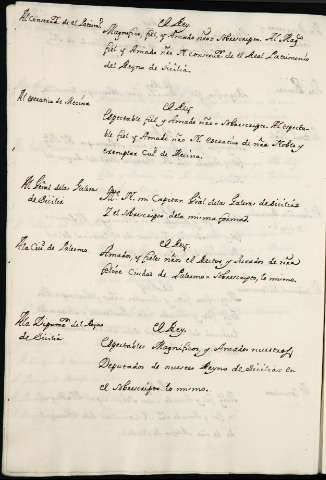 Al Conserva.or de el Patrim.o
El Rey.
Magnifico, fiel, y Amado nr̃o = Sobrescripto. Al Mag.co
fiel y Amado nr̃o N. conserva.or de el Real Patrimonio
del Reyno de Sicilia.
Al estratico de Mecina
El Rey
Espectable fiel y Amado nr̃o = Sobrescripto. Al especta-
ble fiel y Amado nr̃o N. estratico de nr̃a Noble y
exemplar Ciu.d de Mecina.
Al Gñral delas Galeras
de Sicilia
N. mi Capitan Gñral delas Galeras de Sicilia
Y el Sobrescripto dela misma forma.
Ala Ciu.d de Palermo
El Rey.
Amados, y fieles nr̃os el Pretor, y Jurados de nr̃a
felice Ciudad de Palermo = Sobrescripto, lo mismo.
Ala Diputa.on del Reyno
de Sicilia
El Rey.
Espectables Magnificos, y Amados nuestros,
Deputados de nuestro Reyno de Sicilia = en
el Sobrescripto lo mismo.